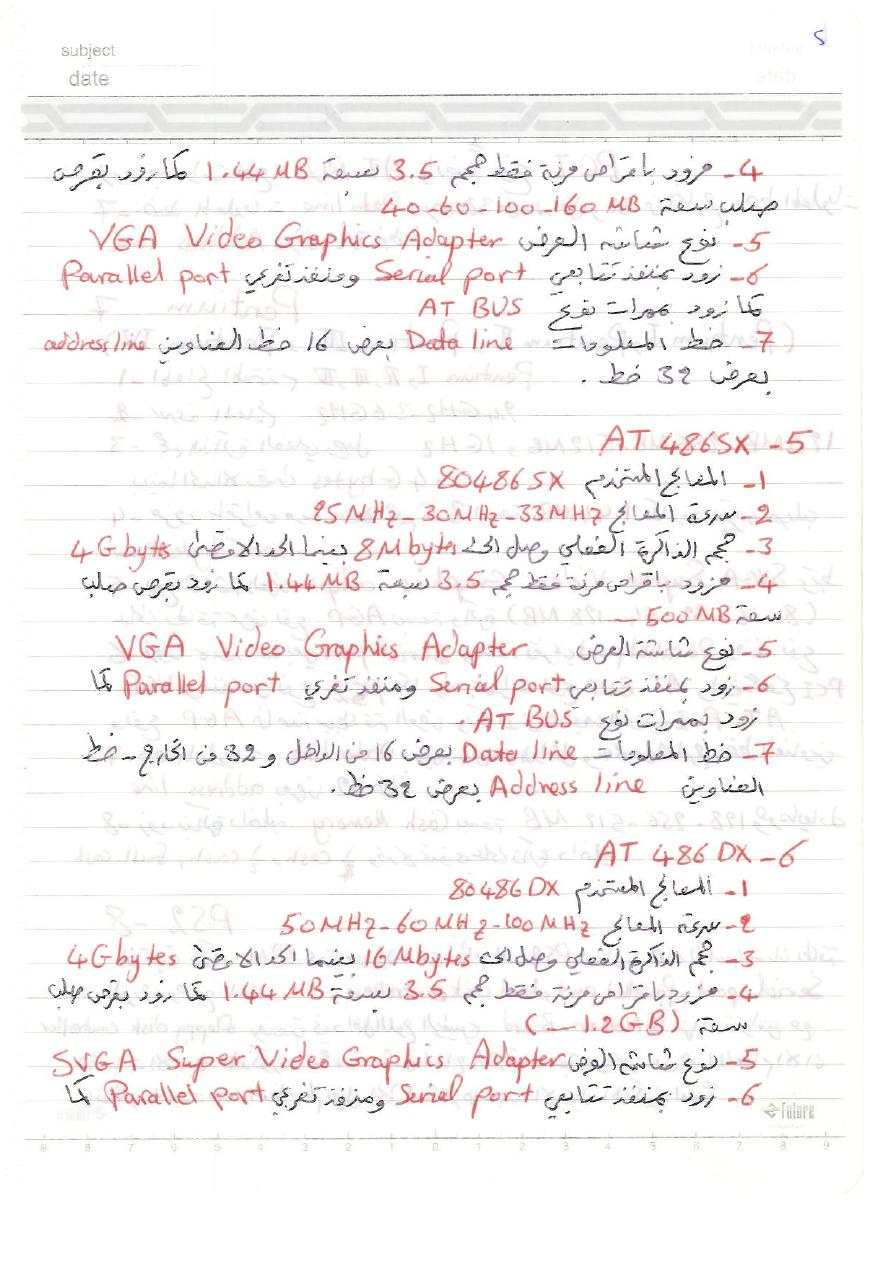 subject
date
5
4- مزود باقراص مرنة فقط حجم 3.5 بسعة 1.44 MB كما زود بقرص
صلب سعة 40-60-100-160 MB
5- نوع شاشة العرض VGA Video Graphics Adapter
6- زود بمنفذ تتابعي Serial port ومنفذ تفرعي Parallel port
كما زود بممرات نوع AT BUS
7- خط المعلومات Data line بعرض 16 خط العناوين address line
بعرض 32 خط .
5- AT 486SX
1- المعالج المستخدم 80486SX
2- سرعة المعالج 25MHz-30MHz-33MHz
3- حجم الذاكرة الفعلي وصل الى 8Mbytes بينما الحد الاقصى 4Gbyts
4- مزود باقراص مرنة فقط حجم 3.5 بسعة 1.44 MB كما زود بقرص صلب
سعة 500MB —
5- نوع شاشة العرض VGA Video Graphics Adapter
6- زود بمنفذ تتابعي Serial port ومنفذ تفرعي Parallel port كما
زود بممرات نوع AT BUS .
7- خط المعلومات Data line بعرض 16 من الداخل و 32 من الخارج - خط
العناوين Address line بعرض 32 خط.
6- AT 486 DX
1- المعالج المستخدم 80486DX
2- سرعة المعالج 50MHz-60MHz-100MHz
3- حجم الذاكرة الفعلي وصل الى 16Mbytes بينما الحد الاقصى 4Gbytes
4- مزود باقراص مرنة فقط حجم 3.5 بسعة 1.44 MB كما زود بقرص صلب
سعة (1.2GB —)
5- نوع شاشة العرض SVGA Super Video Graphics Adapter
6- زود بمنفذ تتابعي Serial port ومنفذ تفرعي Parallel port كما
Future
9 8 7 6 5 4 3 2 1 0 1 2 3 4 5 6 7 8 9